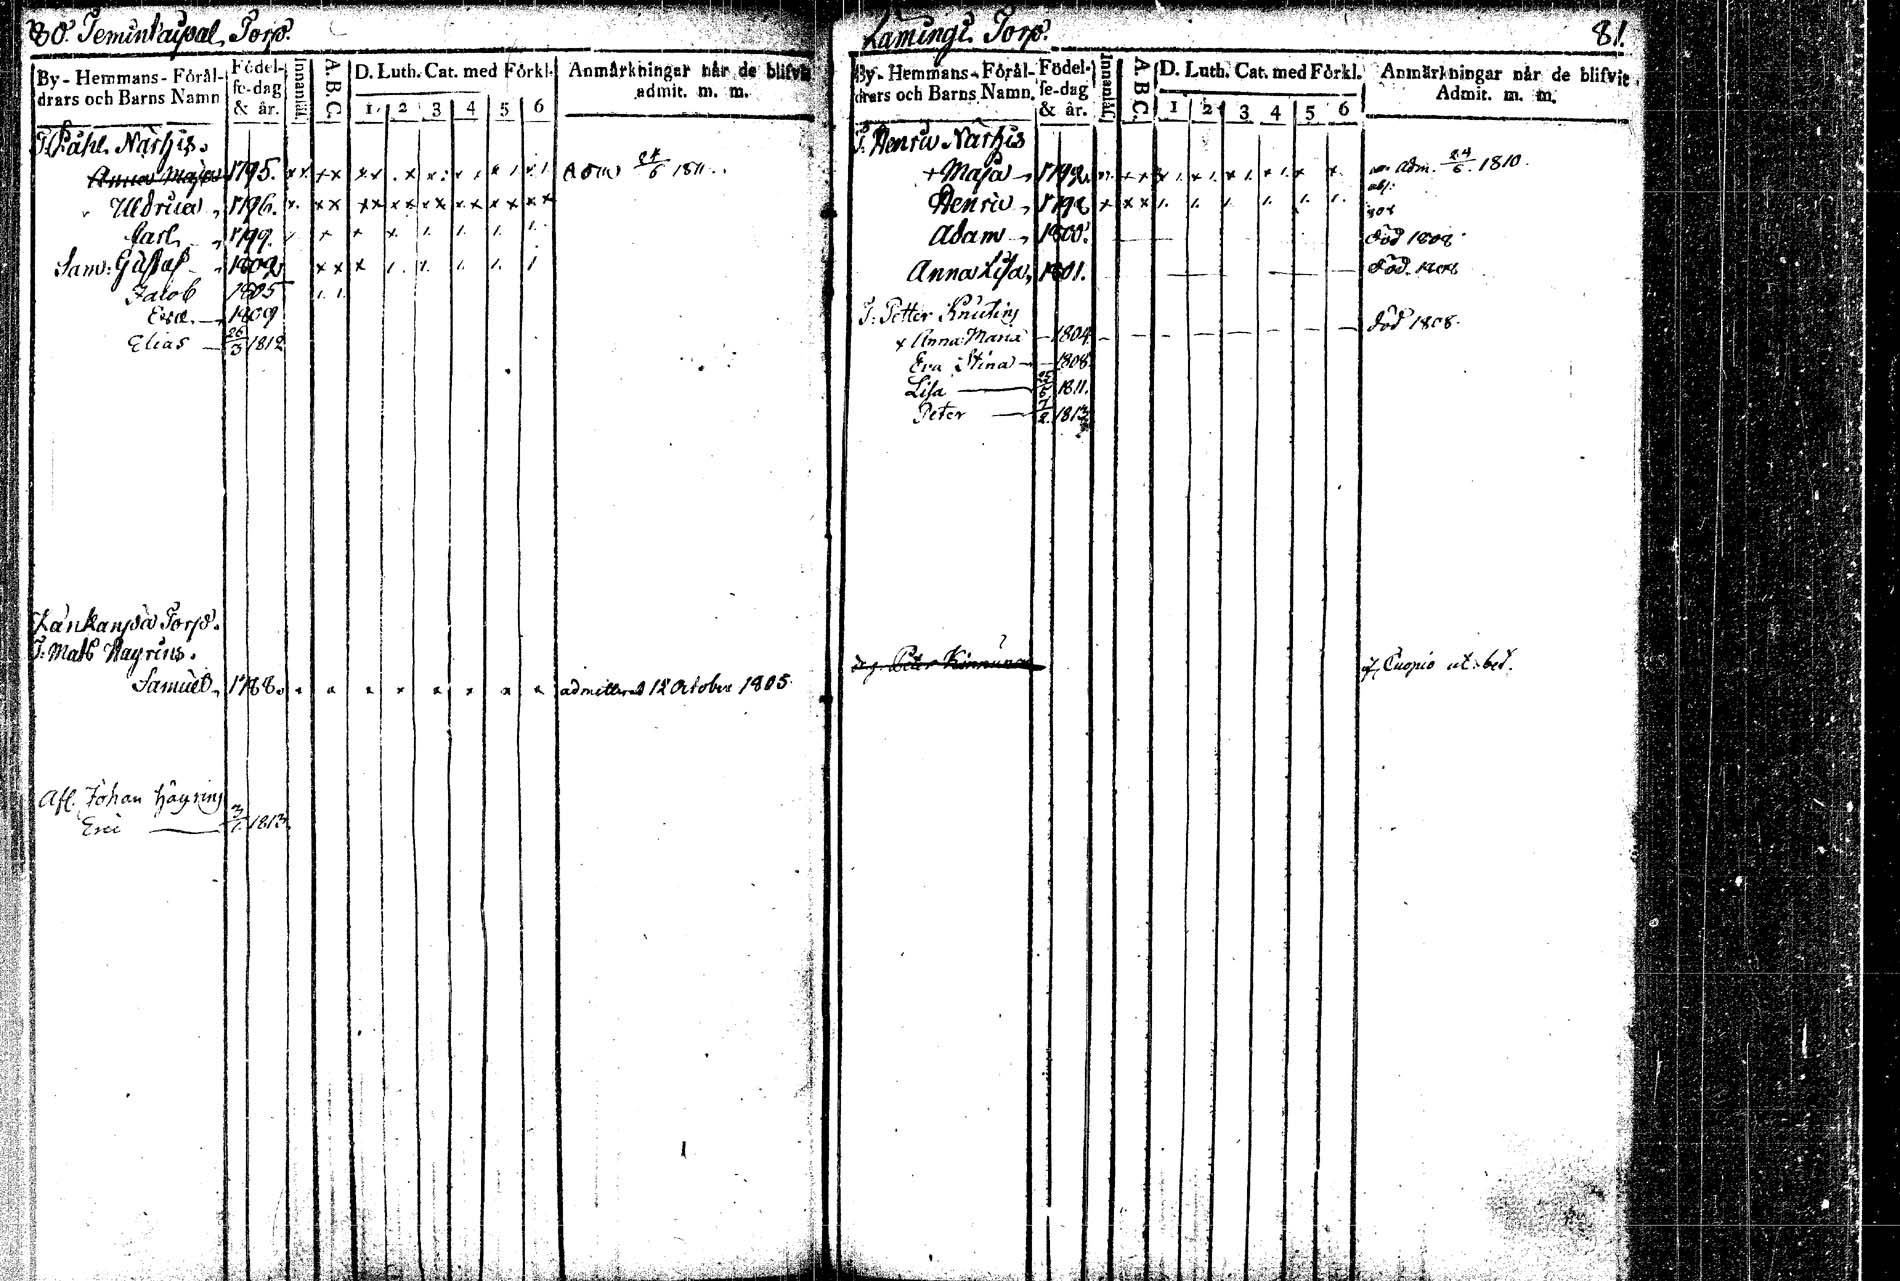 80. Temintaipal Torp.
By-Hemmans-Förål-
drars och Barns Namn
Födel-
se-dag
& år.
Innanläs.
A.B.C.
D. Luth. Cat. med Förkl.
1 2 3 4 5 6
Anmärkningar når de blifvit
admit. m. m.
T. Påhl Närhis.
Anna Maja 1795. x x x x x x . x x : x x x 1 x 1 Adm 24/6 1811.
Uldrica 1796. x. x x x x x x x x x x x x x x
Carl 1799. x x x 1. 1. 1. 1.
Sam: Gustaf 1802 x x x 1. 1. 1. 1. 1
Jacob 1805 1. 1.
Eva 1809
Elias 26/3 1812
Länkanpää Torp.
T: Mats Häyrins.
Samuel 1788. x x x x x x x x admitterad 12 October 1805.
Afl. Johan Häyrins
Eric 3/1. 1813.
Lamingi Torp. 81.
By-Hemmans-Förål-
drars och Barns Namn.
Födel-
se-dag
& år.
Innanläs.
A.B.C.
D. Luth. Cat. med Förkl.
1 2 3 4 5 6
Anmärkningar når de blifvit
Admit. m. m.
T. Henric Närhis
+ Maja 1792. x x x 1. x 1. x 1. x 1. x x. Adm. 24/6. 1810.
Henric 1798 x x x 1. 1. 1. 1. 1. 1.
Adam 1800. död 1808.
Anna Lisa 1801. död. 1808
T: Petter Knuting
x Anna Maria 1804 död 1808.
Eva Stina 1808
Lisa 1811.
Peter 7/2. 1813
Peter Kinnunen Cuopio ut. bet.